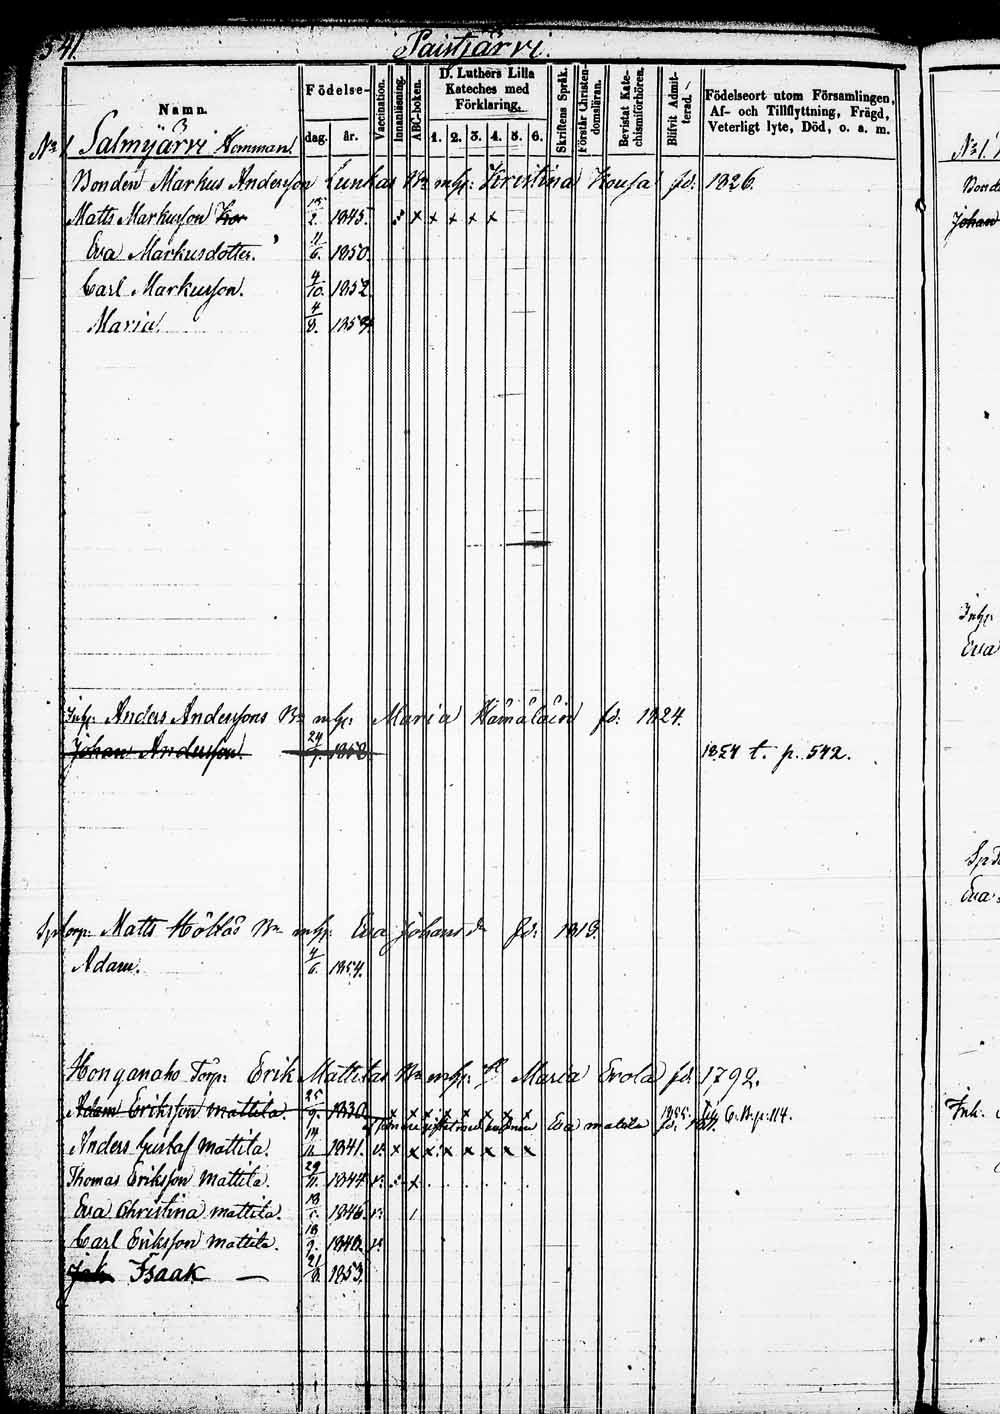 541.
Paistjärvi.
Namn.
Födelse-
dag.
år.
Vaccination.
Innanläsning.
ABC-boken.
D. Luthers Lilla Kateches med Förklaring.
1. 2. 3. 4. 5. 6.
Skriftens Språk.
Förstår Christendomsläran.
Bevistat Katechismiförhören.
Blifvit Admitterad.
Födelseort utom Församlingen, Af- och Tillflyttning, Frägd, Veterligt lyte, Död, o. a. m.
No 1 Salmijärvi Hemman.
Bonden Markus Andersson Lunkas Bn m hu: Kristina fd: 1826.
Matts Markusson 2. 1845. x x x x x
Eva Markusdotter. 11/6. 1850.
Carl Markusson. 4/10. 1852.
Maria. 4/8. 1854.
Inh: Anders Anderssons Bn m hu: Maria Hämäläin fd: 1824.
Johan Andersson. 24 1853. 1854 t. p. 542.
Matts Höltäs Bn m hu: Eva Johansdr fd: 1813.
Adam. 4/6. 1854.
Honganaho Torp: Erik Mattilas Bn m hu: Maria Erola fd: 1792.
Adam Eriksson Mattila. 25/9. 1830. x x x x x x x x
Eva 1855.
Anders Gustaf Mattila. 1841. v. x x x x x x x x
Thomas Eriksson Mattila. 29/11. 1844. v. x
Eva Christina Mattila. 18 1846. v.
Carl Eriksson Mattila. 18/9. 1848. v.
Isaak — 21/8. 1853.
No 1.
Johan
Inh:
Eva
Eva
Inh: